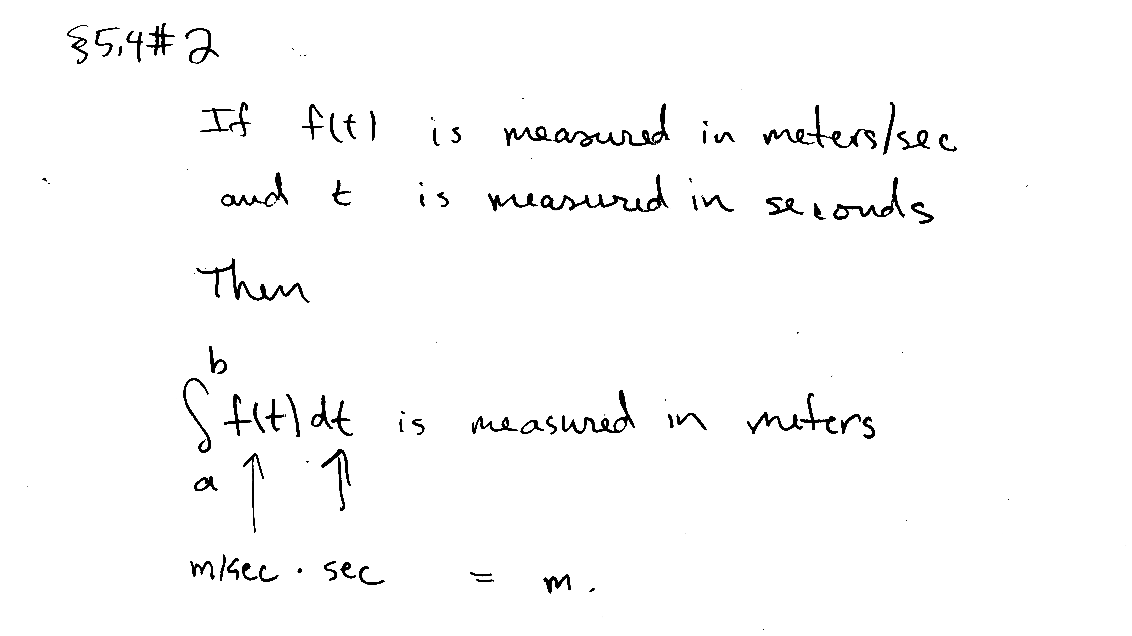 §5.4#2
If f(t) is measured in meters/sec
and t is measured in seconds
Then
∫_a^b f(t) dt is measured in meters
↑ ↑
m/sec · sec = m.